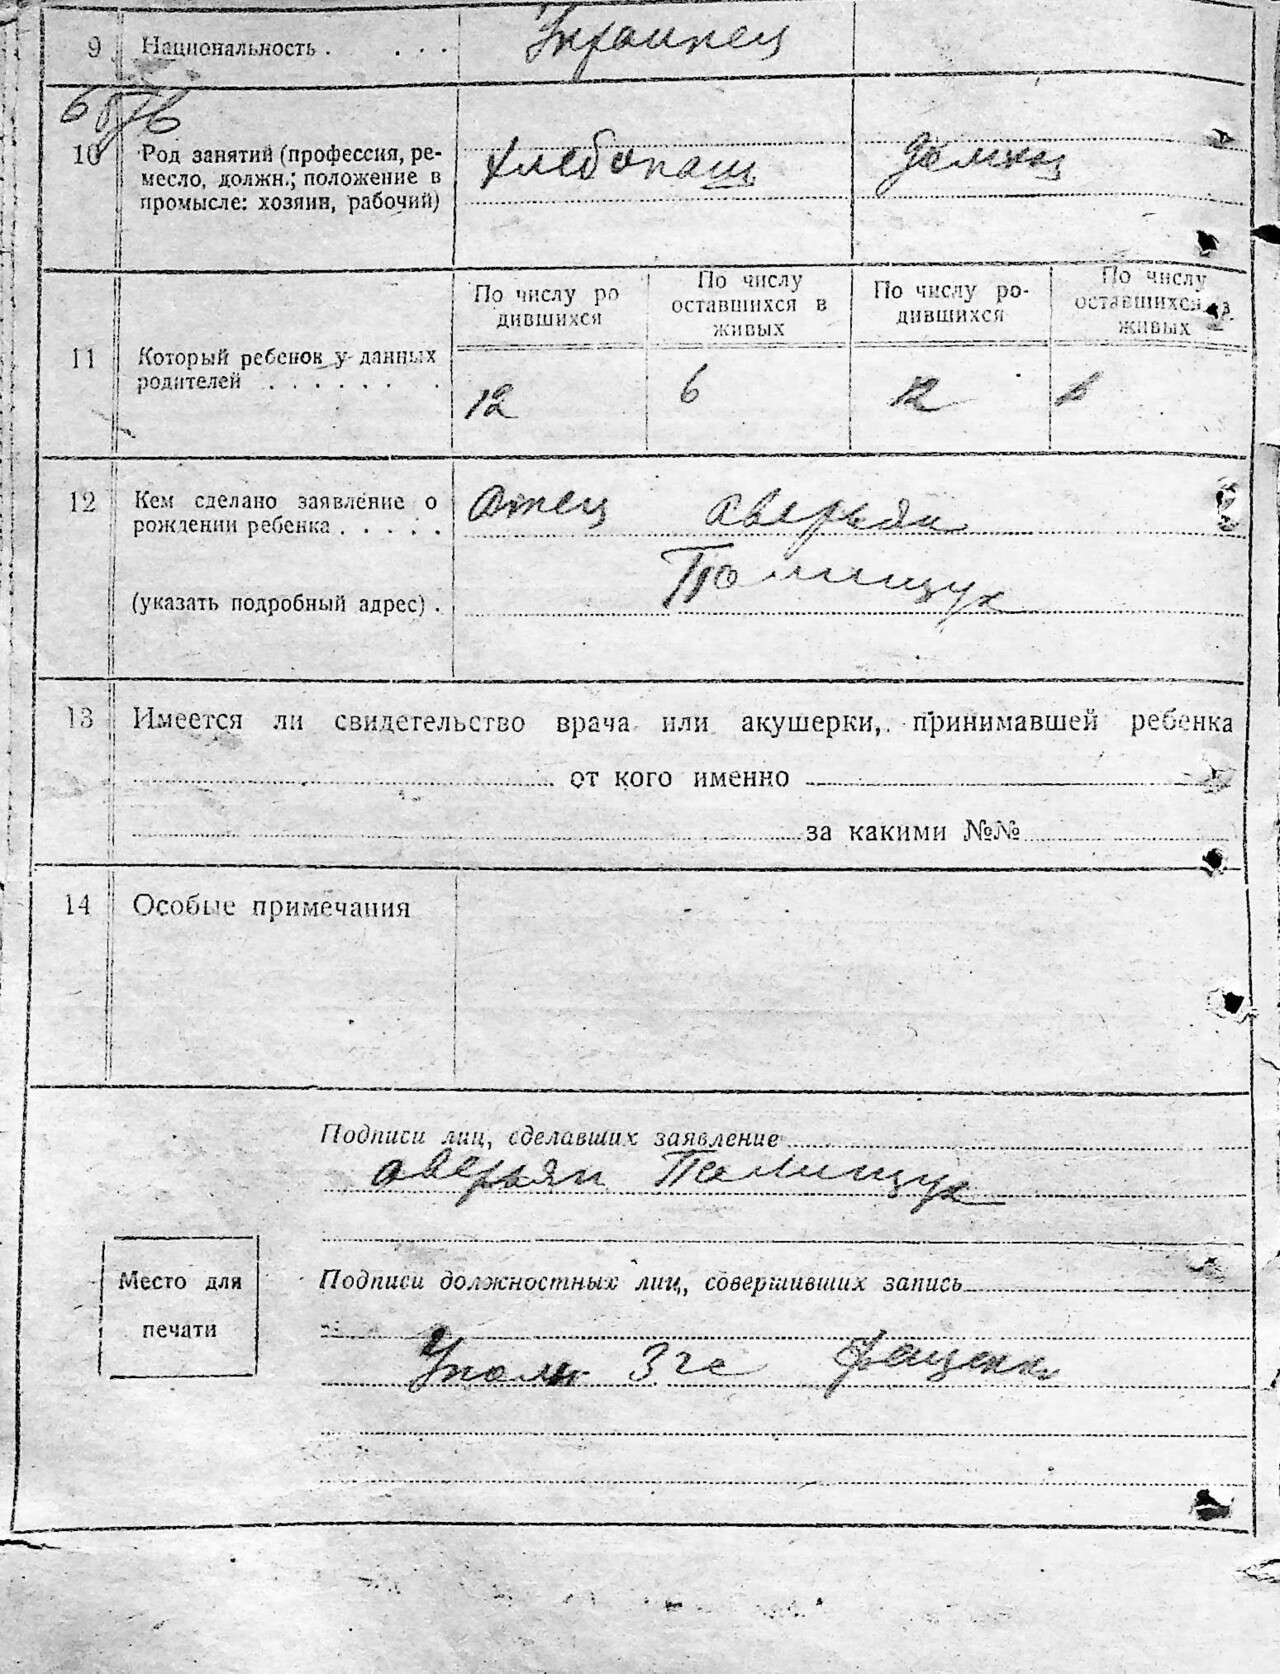 9 Национальность . . . . Украинец
10 Род занятий (профессия, ре-
месло, должн.; положение в
промысле: хозяин, рабочий)
Хлебопаш Домхоз
По числу ро
дившихся
По числу
оставшихся в
живых
По числу ро-
дившихся
По числу
оставшихся в
живых
11 Который ребенок у данных
родителей . . . . . . .
12 6 12 6
12 Кем сделано заявление о
рождении ребенка . . . . .
Отец Аверьян
Полищук
(указать подробный адрес) .
13 Имеется ли свидетельство врача или акушерки, принимавшей ребенка
от кого именно
за какими №№
14 Особые примечания
Подписи лиц, сделавших заявление
Аверьян Полищук
Место для
печати
Подписи должностных лиц, совершивших запись
Упол Згс